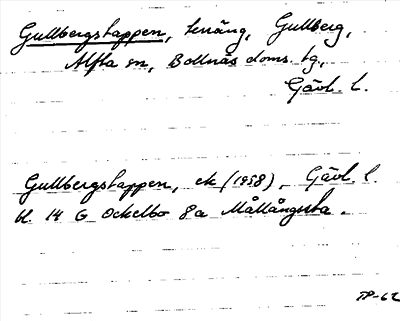 Gullbergstappen, terräng, Gullberg,
Alfta sn, Bollnäs doms. tg,
Gävl. l.
Gullbergstappen, ek (1958), Gävl. l.
bl. 14 G Ockelbo 8a Mållångsta.
TP-62